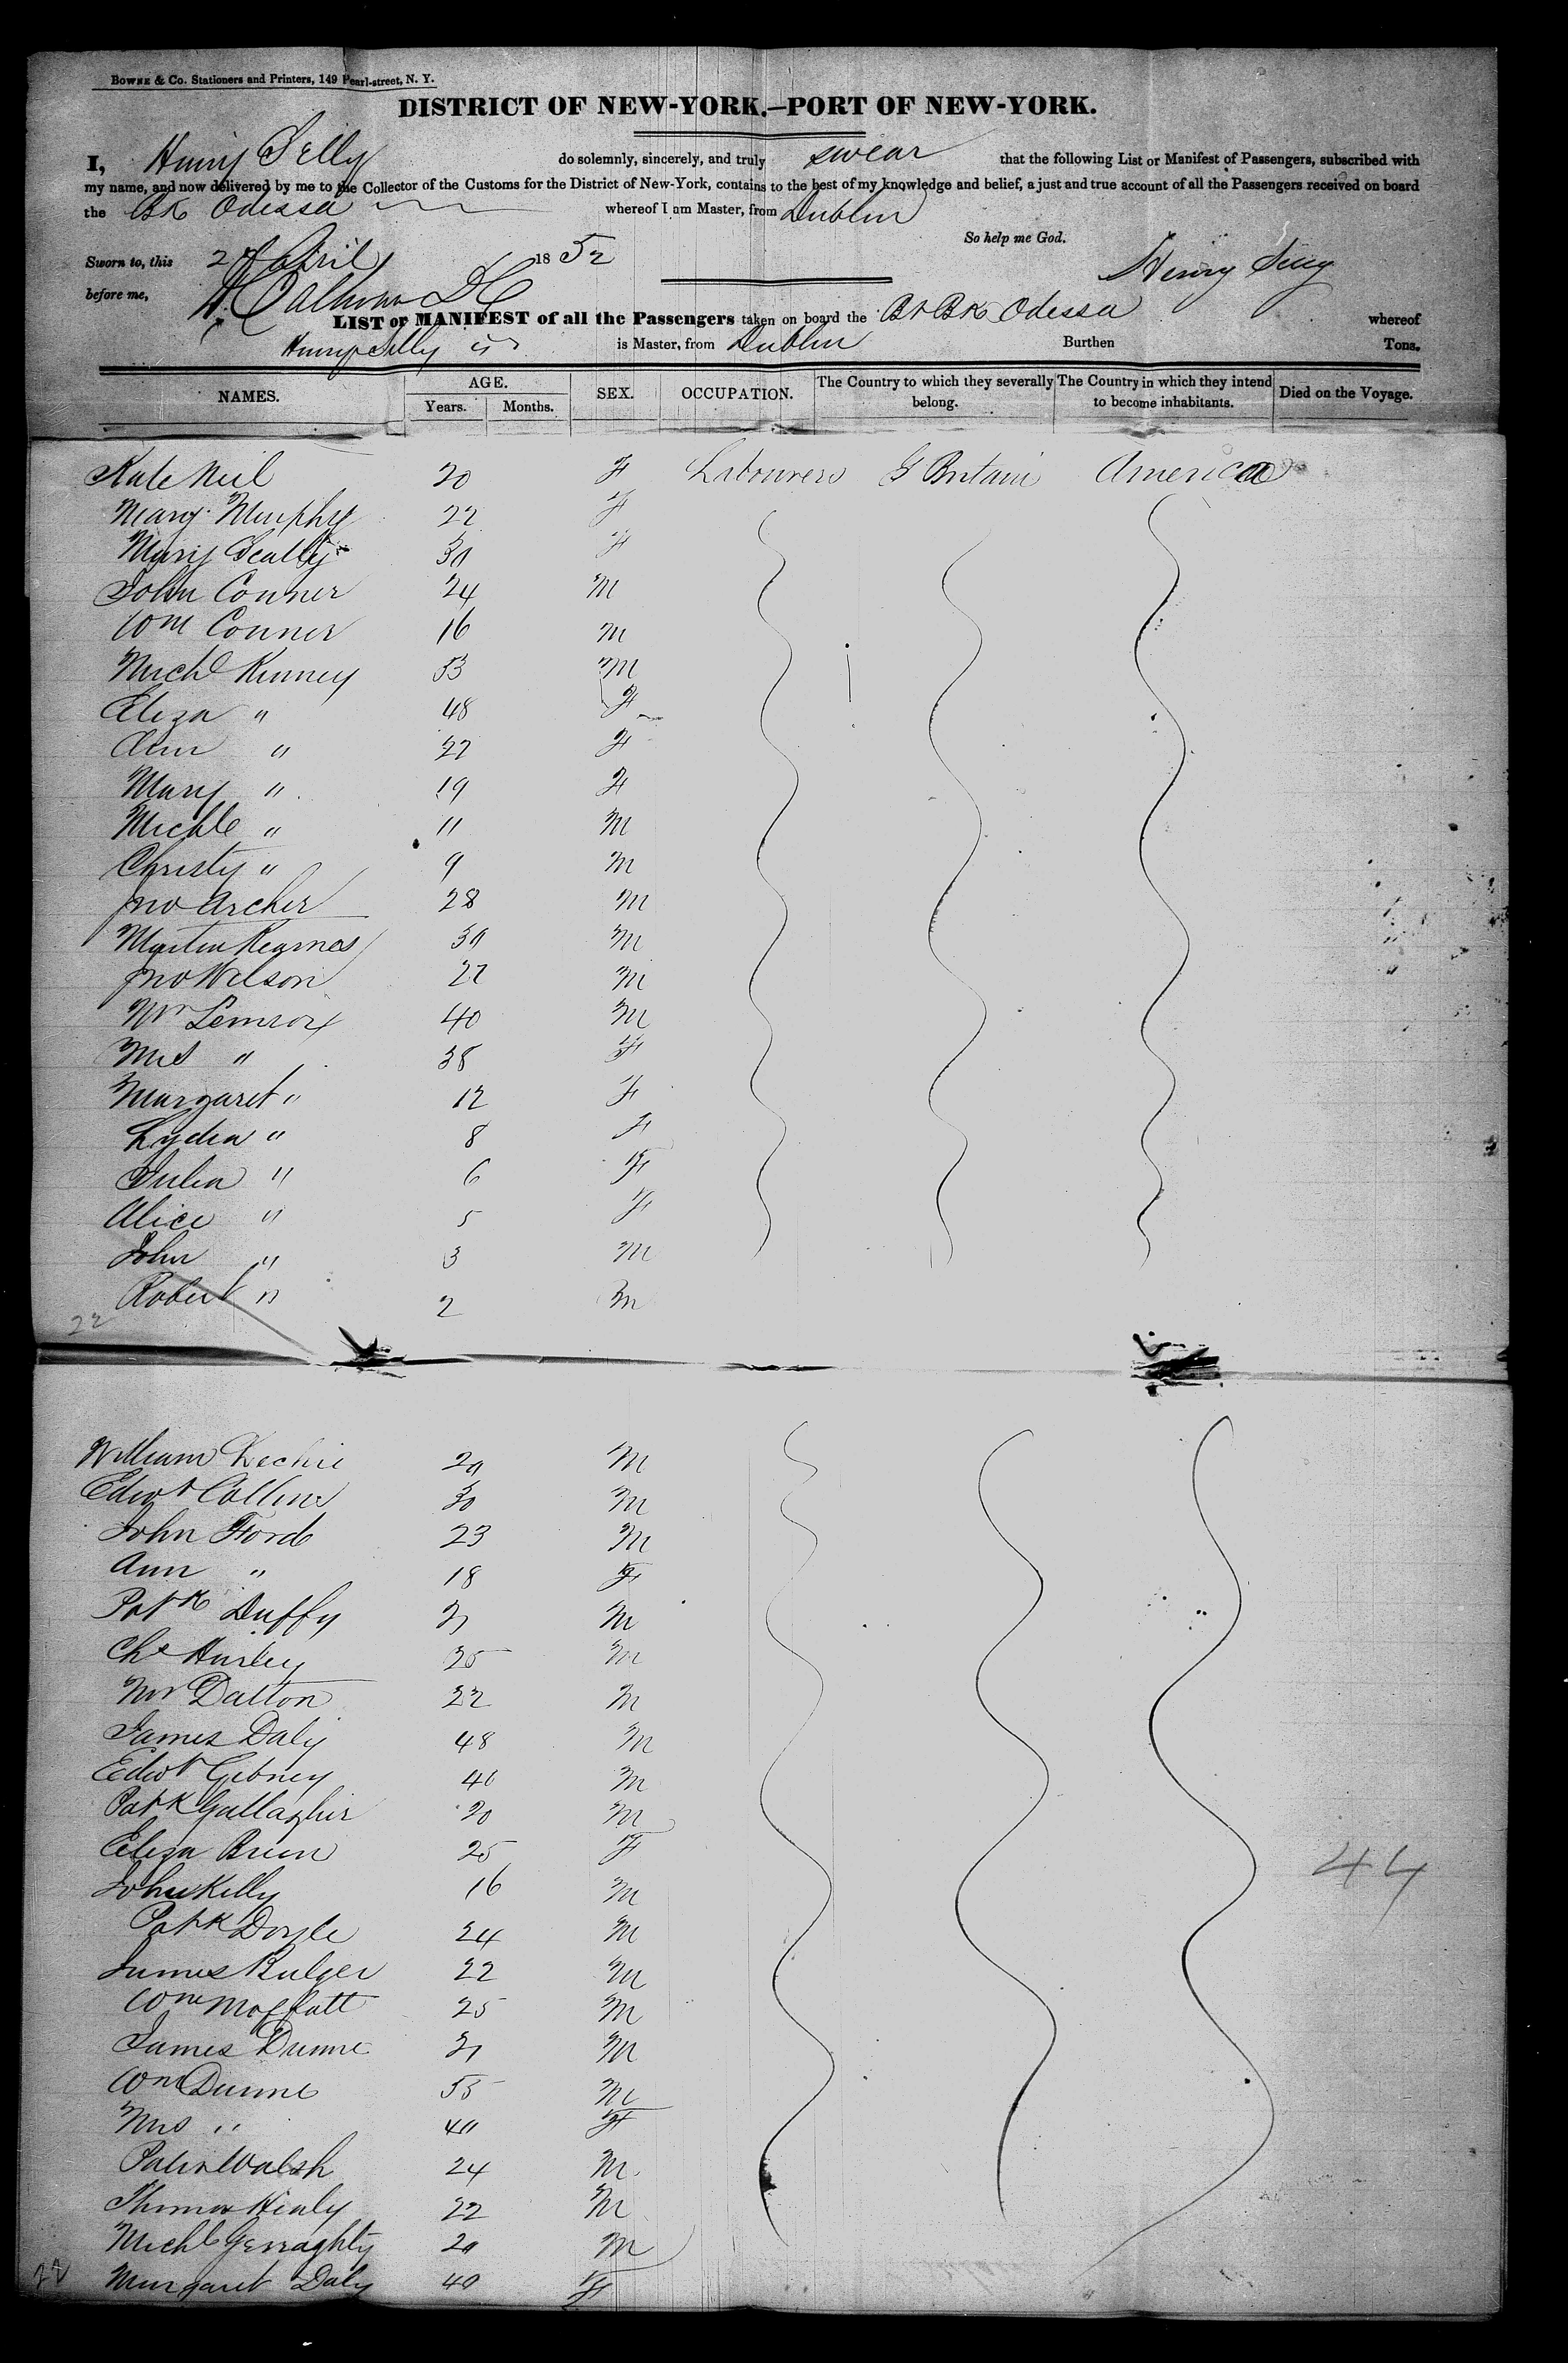 BOWNE & Co. Stationers and Printers, 149 Pearl-street, N. Y.
DISTRICT OF NEW-YORK.—PORT OF NEW-YORK.
I, Henry Selly do solemnly, sincerely, and truly swear that the following List or Manifest of Passengers, subscribed with
my name, and now delivered by me to the Collector of the Customs for the District of New-York, contains to the best of my knowledge and belief, a just and true account of all the Passengers received on board
the Bk Odessa whereof I am Master, from Dublin
So help me God.
Sworn to, this 2 April 1852 Henry
before me,
LIST or MANIFEST of all the Passengers taken on board the Br Bk Odessa whereof
Henry Selly is Master, from Dublin Burthen Tons.
NAMES. AGE. Years. Months. SEX. OCCUPATION. The Country to which they severally belong. The Country in which they intend to become inhabitants. Died on the Voyage.
Kate Neil 20 F Labourers G Britain America
Mary Murphy 22 F
Mary Scally 30 F
John Conner 24 M
Wm Conner 16 M
Michl Kinney 53 M
Eliza " 48 F
Ann " 22 F
Mary " 19 F
Michle " 11 M
Christy " 9 M
Jno Archer 28 M
Martin Kearnes 30 M
Jno Wilson 22 M
Mr 40 M
Mrs " 38 F
Margaret " 12 F
Lydia " 8 F
Julia " 6 F
Alice " 5 F
John " 3 M
Robert " 2 M
22
William 20 M
Edwd Collins 30 M
John Ford 23 M
Ann " 18 F
Patk Duffy 21 M
Chs Hurley 25 M
Mr Dalton 22 M
James Daly 48 M
Edwd Gibney 40 M
Patk Gallagher 20 M
Eliza Brien 25 F
44
John Kelly 16 M
Patk Doyle 24 M
James Bulger 22 M
Wm Moffatt 25 M
James Dunne 21 M
Wm Dunne 55 M
Mrs " 40 F
Walsh 24 M
Thomas Healy 22 M
Michl Gerraghty 20 M
22 Margaret Daly 40 F